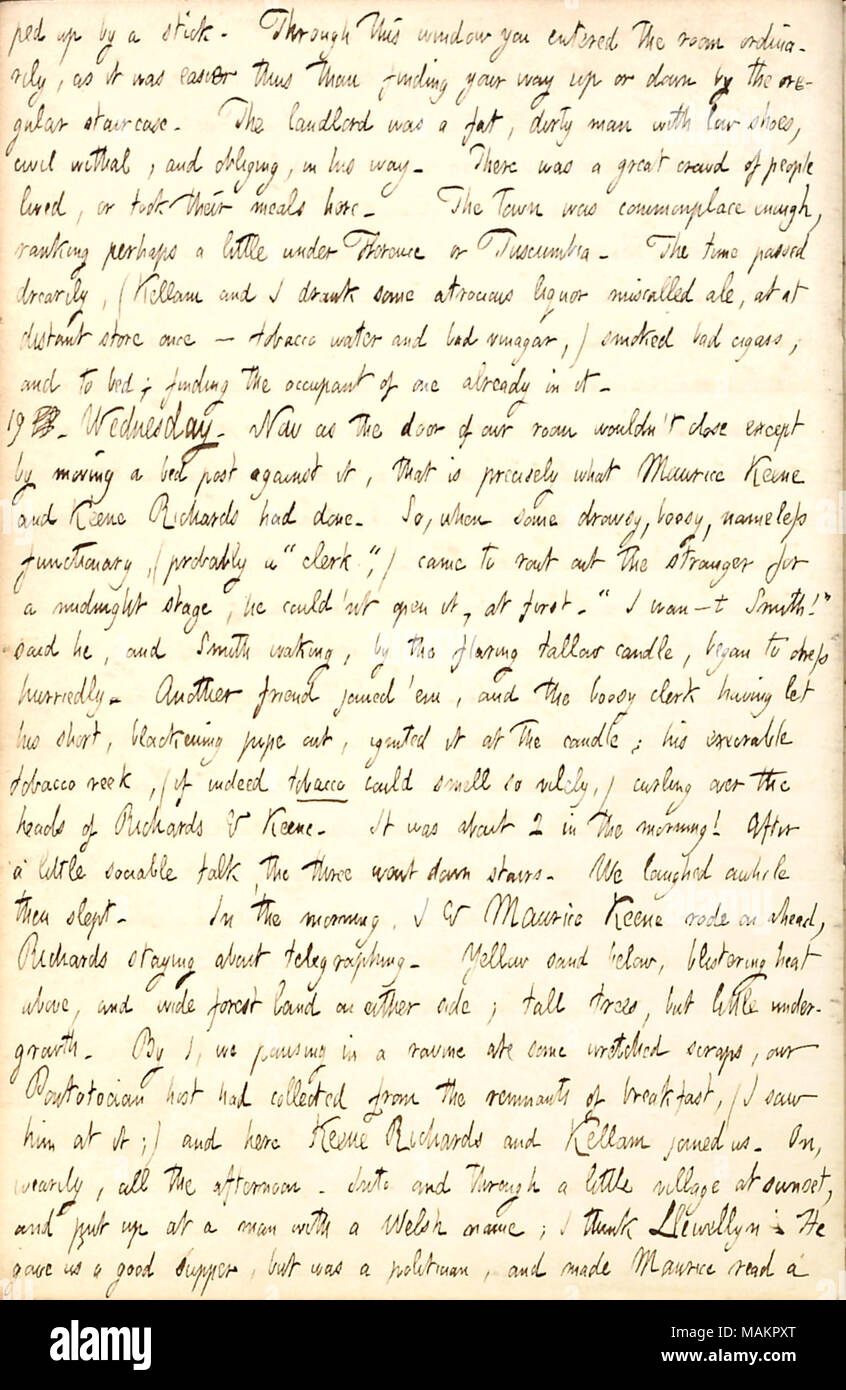 ped up by a stick. Through this window you entered the room ordina-
rily, as it was easier thus than finding your way up or down by the re-
gular staircase. The landlord was a fat, dirty man with low shoes,
civil withal, and obliging, in his way. There was a great crowd of people
lived, or took their meals here. The Town was commonplace enough,
ranking perhaps a little under Florence or Tuscumbia. The time passed
drearily, (Kellam and I drank some atrocious liquor miscalled ale, at at
distant store once — tobacco water and bad vinagar,) smoked bad cigars,
and to bed; finding the occupant of one already in it.
19. Wednesday. Now as the door of our room wouldn't close except
by moving a bed post against it, that is precisely what Maurice Keene
and Keene Richards had done. So, when some drowsy, boosy, nameless
functionary, (probably a "clerk",) came to rout out the stranger for
a midnight stage, he could'nt open it, at first. "I wan—t Smith!"
said he, and Smith waking, by the flaring tallow candle, began to dress
hurriedly. Another friend joined 'em, and the boosy clerk having let
his short, blackening pipe out, ignited it at the candle; his execrable
tobacco reek, (if indeed tobacco could smell so vilely,) curling over the
heads of Richards & Keene. It was about 2 in the morning! After
a little sociable talk the three went down stairs. We laughed awhile
then slept. In the morning, I & Maurice Keene rode on ahead,
Richards staying about telegraphing. Yellow sand below, blistering heat
above, and wide forest land on either side; tall trees, but little under-
growth. By 1, we pausing in a ravine ate some wretched scraps, our
Pontotocian host had collected from the remnants of breakfast, (I saw
him at it;) and here Keene Richards and Kellam joined us. On,
wearily, all the afternoon. Into and through a little village at sunset,
and put up at a man with a Welsh name; I think Llewellyn. He
gave us a good supper, but was a politician, and made Maurice read a
alamy
Image ID: MAKPXT
www.alamy.com